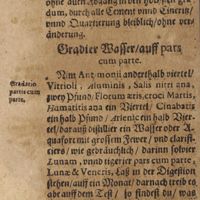 ohne allen Abgang in den höchsten gra-
dum, durch alle Cement vnnd Cineris,
vnnd Quartierung bleiblich/ohne ver-
änderung.
Gradier Wasser/auff pars
cum parte.
Gradatio
partis cum
parte.
Nim Antimonii anderthalb viertel/
Vitrioli, Aluminis, Salis nitri ana,
zwey Pfund/ Florum æris, croci Martis,
Hæmatitis ana ein Viertel/ Cinabaris
ein halb Pfund/ Arsenic ein halb Vier-
tel/ darauß distillier ein Wasser oder A-
quafort mit grossem Fewr/ vnd clarifi-
ciers/ wie gebräuchlich/ darinn solvier
Lunam, vnnd tigerier pars cum parte,
Lunæ & Veneris, laß in der Digestion
stehen/auff ein Monat/ darnach treib es
abe auff dem Test/ so findest du/ was